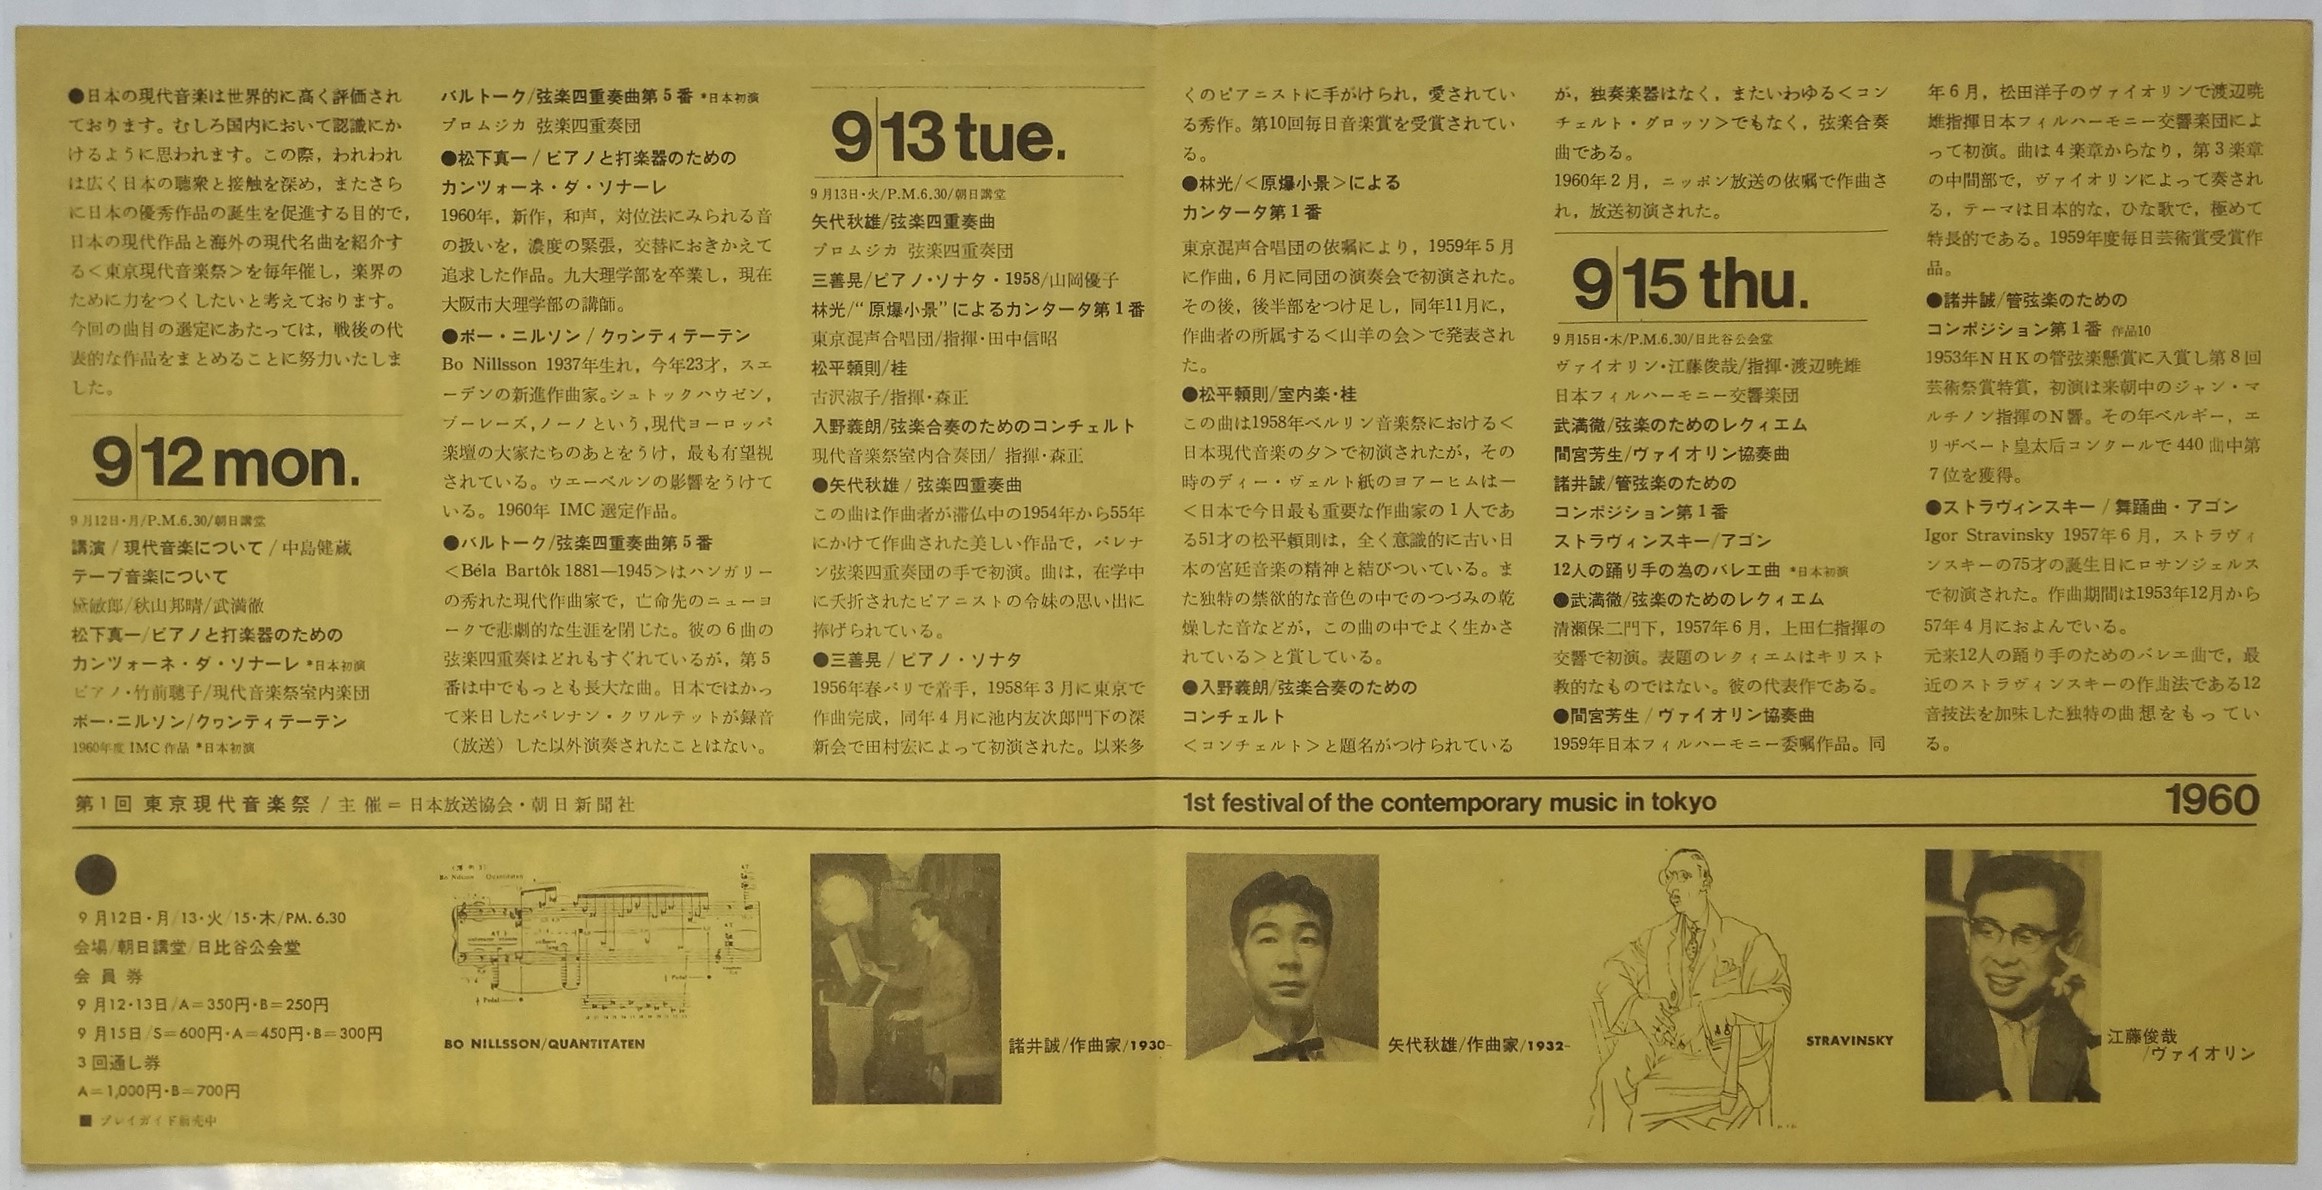 ●日本の現代音楽は世界的に高く評価され
ております。むしろ国内において認識にか
けるように思われます。この際，われわれ
は広く日本の聴衆と接触を深め，またさら
に日本の優秀作品の誕生を促進する目的で，
日本の現代作品と海外の現代名曲を紹介す
る＜東京現代音楽祭＞を毎年催し，楽界の
ために力をつくしたいと考えております。
今回の曲目の選定にあたっては，戦後の代
表的な作品をまとめることに努力いたしま
した。
9 12 mon.
9月12日・月/P.M.6.30/朝日講堂
講演/現代音楽について/中島健蔵
テープ音楽について
黛敏郎/秋山邦晴/武満徹
松下真一/ピアノと打楽器のための
カンツォーネ・ダ・ソナーレ *日本初演
ピアノ・竹前聰子/現代音楽祭室内楽団
ボー・ニルソン/クヮンティテーテン
1960年度 IMC 作品 *日本初演
バルトーク/弦楽四重奏曲第5番 *日本初演
プロムジカ 弦楽四重奏団
●松下真一/ピアノと打楽器のための
カンツォーネ・ダ・ソナーレ
1960年，新作，和声，対位法にみられる音
の扱いを，濃度の緊張，交替におきかえて
追求した作品。九大理学部を卒業し，現在
大阪市大理学部の講師。
●ボー・ニルソン/クヮンティテーテン
Bo Nillsson 1937年生れ，今年23才，スエ
ーデンの新進作曲家。シュトックハウゼン，
ブーレーズ，ノーノという，現代ヨーロッパ
楽壇の大家たちのあとをうけ，最も有望視
されている。ウエーベルンの影響をうけて
いる。1960年 IMC 選定作品。
●バルトーク/弦楽四重奏曲第5番
＜Béla Bartôk 1881—1945＞はハンガリー
の秀れた現代作曲家で，亡命先のニューヨ
ークで悲劇的な生涯を閉じた。彼の6曲の
弦楽四重奏はどれもすぐれているが，第5
番は中でもっとも長大な曲。日本ではかっ
て来日したパレナン・クワルテットが録音
（放送）した以外演奏されたことはない。
9 13 tue.
9月13日・火/P.M.6.30/朝日講堂
矢代秋雄/弦楽四重奏曲
プロムジカ 弦楽四重奏団
三善晃/ピアノ・ソナタ・1958/山岡優子
林光/“原爆小景”によるカンタータ第1番
東京混声合唱団/指揮・田中信昭
松平頼則/桂
古沢淑子/指揮・森正
入野義朗/弦楽合奏のためのコンチェルト
現代音楽祭室内合奏団/ 指揮・森正
●矢代秋雄/弦楽四重奏曲
この曲は作曲者が滞仏中の1954年から55年
にかけて作曲された美しい作品で，パレナ
ン弦楽四重奏団の手で初演。曲は，在学中
に夭折されたピアニストの令妹の思い出に
捧げられている。
●三善晃/ピアノ・ソナタ
1956年春パリで着手，1958年3月に東京で
作曲完成，同年4月に池内友次郎門下の深
新会で田村宏によって初演された。以来多
くのピアニストに手がけられ，愛されてい
る秀作。第10回毎日音楽賞を受賞されてい
る。
●林光/＜原爆小景＞による
カンタータ第1番
東京混声合唱団の依嘱により，1959年5月
に作曲，6月に同団の演奏会で初演された。
その後，後半部をつけ足し，同年11月に，
作曲者の所属する＜山羊の会＞で発表され
た。
●松平頼則/室内楽・桂
この曲は1958年ベルリン音楽祭における＜
日本現代音楽の夕＞で初演されたが，その
時のディー・ヴェルト紙のヨアーヒムは一
＜日本で今日最も重要な作曲家の1人であ
る51才の松平頼則は，全く意識的に古い日
本の宮廷音楽の精神と結びついている。ま
た独特の禁欲的な音色の中でのつづみの乾
燥した音などが，この曲の中でよく生かさ
れている＞と賞している。
●入野義朗/弦楽合奏のための
コンチェルト
＜コンチェルト＞と題名がつけられている
が，独奏楽器はなく，またいわゆる＜コン
チェルト・グロッソ＞でもなく，弦楽合奏
曲である。
1960年2月，ニッポン放送の依嘱で作曲さ
れ，放送初演された。
9 15 thu.
9月15日・木/P.M.6.30/日比谷公会堂
ヴァイオリン・江藤俊哉/指揮・渡辺暁雄
日本フィルハーモニー交響楽団
武満徹/弦楽のためのレクィエム
間宮芳生/ヴァイオリン協奏曲
諸井誠/管弦楽のための
コンポジション第1番
ストラヴィンスキー/アゴン
12人の踊り手の為のバレエ曲 *日本初演
●武満徹/弦楽のためのレクィエム
清瀬保二門下，1957年6月，上田仁指揮の
交響で初演。表題のレクィエムはキリスト
教的なものではない。彼の代表作である。
●間宮芳生/ヴァイオリン協奏曲
1959年日本フィルハーモニー委嘱作品。同
年6月，松田洋子のヴァイオリンで渡辺暁
雄指揮日本フィルハーモニー交響楽団によ
って初演。曲は4楽章からなり，第3楽章
の中間部で，ヴァイオリンによって奏され
る，テーマは日本的な，ひな歌で，極めて
特長的である。1959年度毎日芸術賞受賞作
品。
●諸井誠/管弦楽のための
コンポジション第1番 作品10
1953年NHKの管弦楽懸賞に入賞し第8回
芸術祭賞特賞，初演は来朝中のジャン・マ
ルチノン指揮のN響。その年ベルギー，エ
リザベート皇太后コンクールで440曲中第
7位を獲得。
●ストラヴィンスキー/舞踊曲・アゴン
Igor Stravinsky 1957年6月，ストラヴィ
ンスキーの75才の誕生日にロサンジェルス
で初演された。作曲期間は1953年12月から
57年4月におよんでいる。
元来12人の踊り手のためのバレエ曲で，最
近のストラヴィンスキーの作曲法である12
音技法を加味した独特の曲想をもってい
る。
第1回 東京現代音楽祭/主催=日本放送協会・朝日新聞社
1st festival of the contemporary music in tokyo
1960
9月12日・月/13・火/15・木/PM. 6.30
会場/朝日講堂/日比谷公会堂
会員券
9月12・13日/A=350円・B=250円
9月15日/S=600円・A=450円・B=300円
3回通し券
A=1,000円・B=700円
■ プレイガイド前売中
Bo Nilsson Quantitäten
BO NILLSSON/QUANTITATEN
諸井誠/作曲家/1930-
矢代秋雄/作曲家/1932-
STRAVINSKY
江藤俊哉
/ヴァイオリン